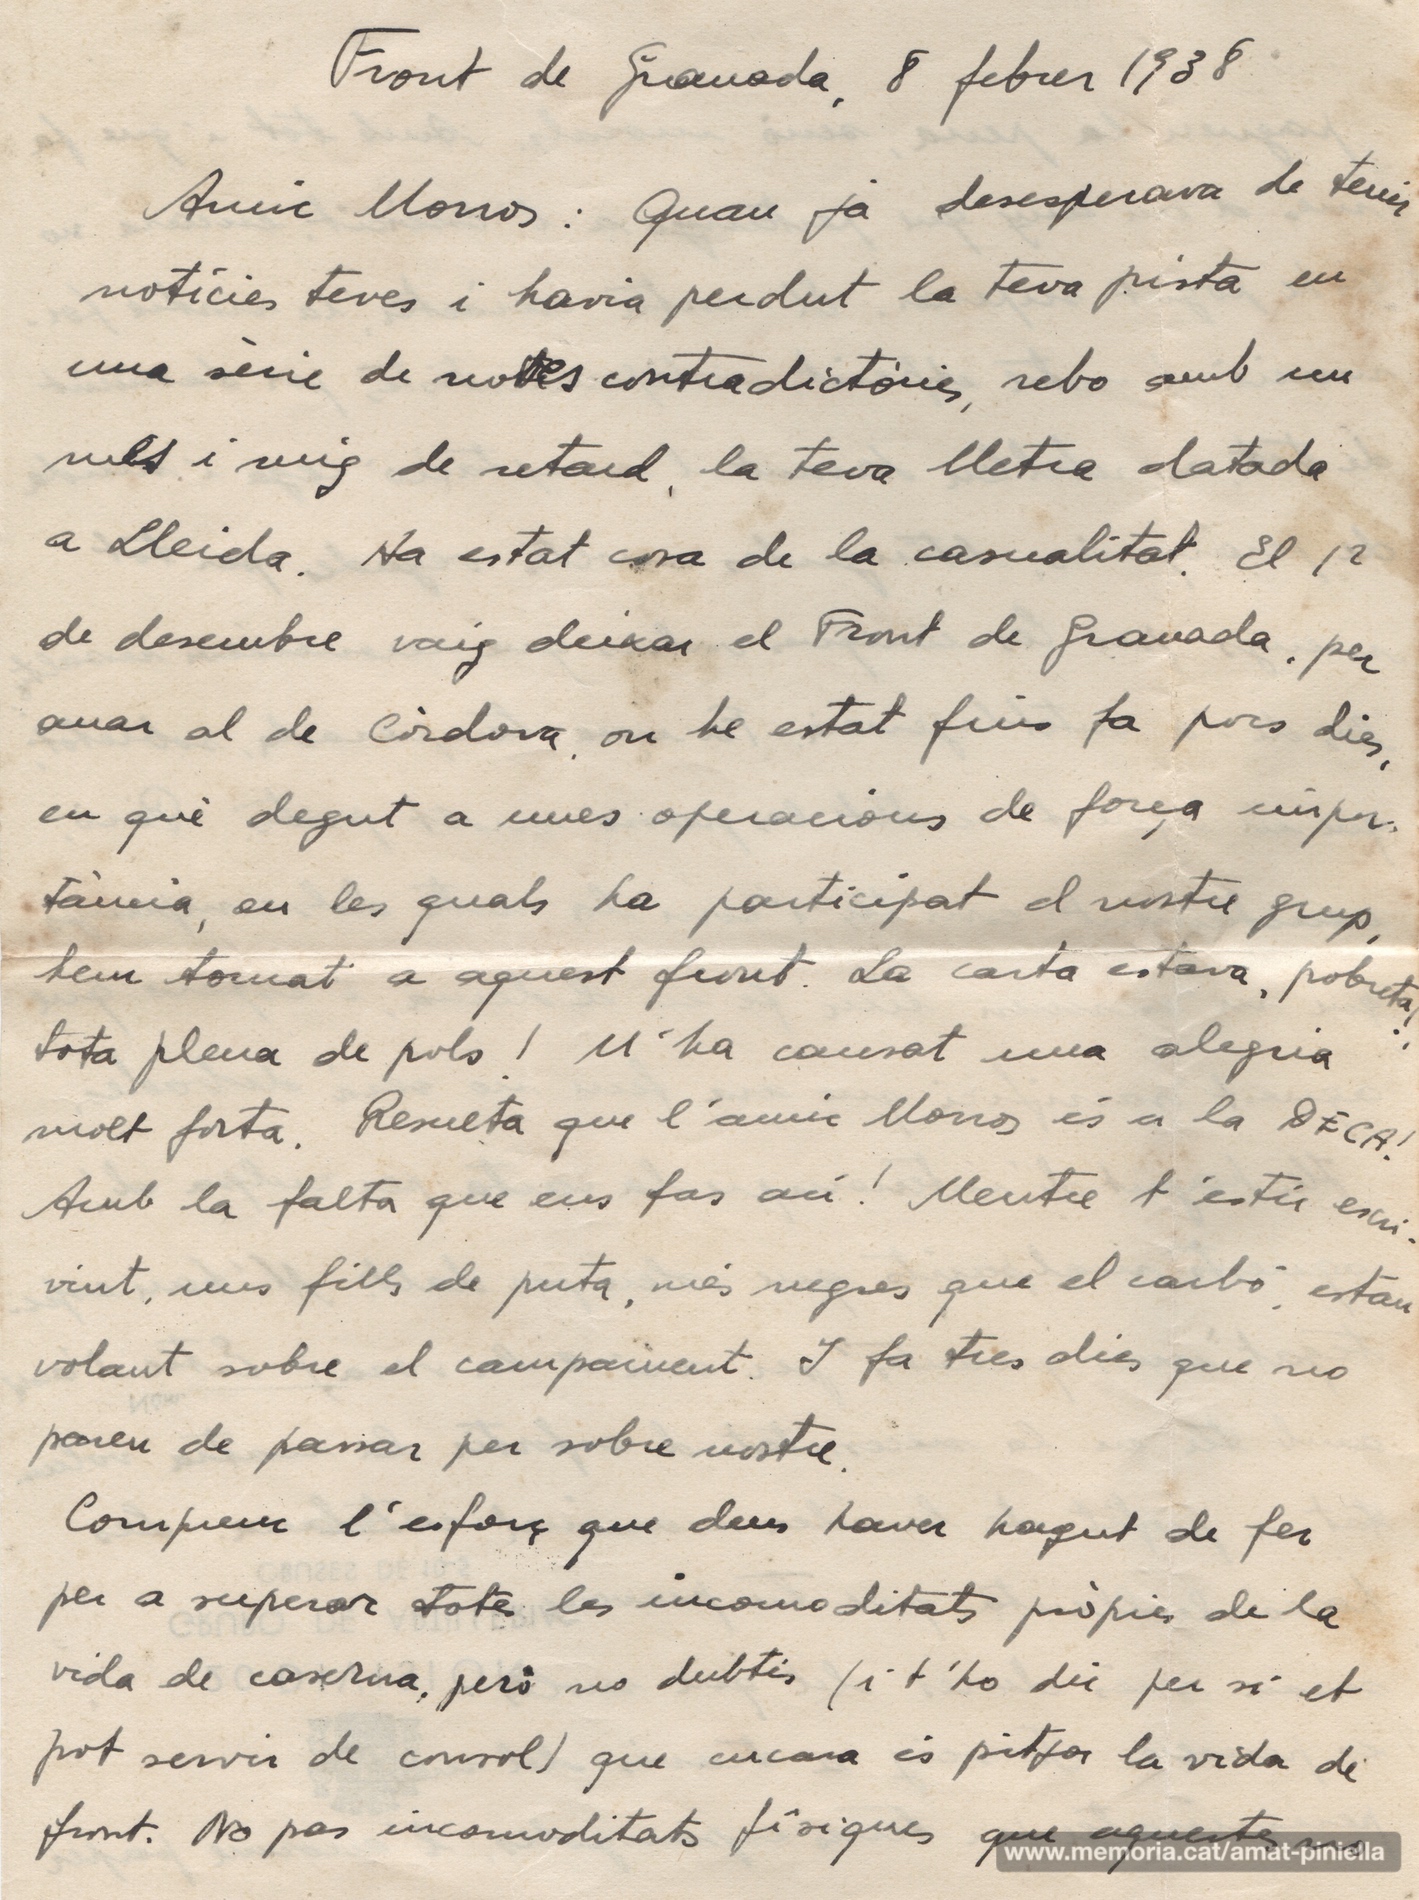 Front de Granada, 8 febrer 1938
Amic Morros: Quan ja desesperava de tenir
notícies teves i havia perdut la teva pista en
una sèrie de notes contradictòries, rebo amb un
mes i mig de retard, la teva lletra datada
a Lleida. Ha estat cosa de la casualitat. El 12
de desembre vaig deixar el Front de Granada, per
anar al de Còrdova, on he estat fins fa pocs dies,
en què degut a unes operacions de força impor-
tància, en les quals ha participat el nostre grup,
hem tornat a aquest front. La carta estava, pobreta!,
tota plena de pols! M'ha causat una alegria
molt forta. Resulta que l'amic Morros és a la DECA!
Amb la falta que ens fas ací! Mentre t'estic escri-
vint, uns fills de puta, més negres que el carbó, estan
volant sobre el campament. I fa tres dies que no
paren de passar per sobre nostre.
Comprenc l'esforç que deus haver hagut de fer
per a superar totes les incomoditats pròpies de la
vida de caserna, però no dubtis (i t'ho dic per si et
pot servir de consol) que encara és pitjor la vida de
front. No pas incomoditats físiques que aquestes no
www.memoria.cat/amat-piniella